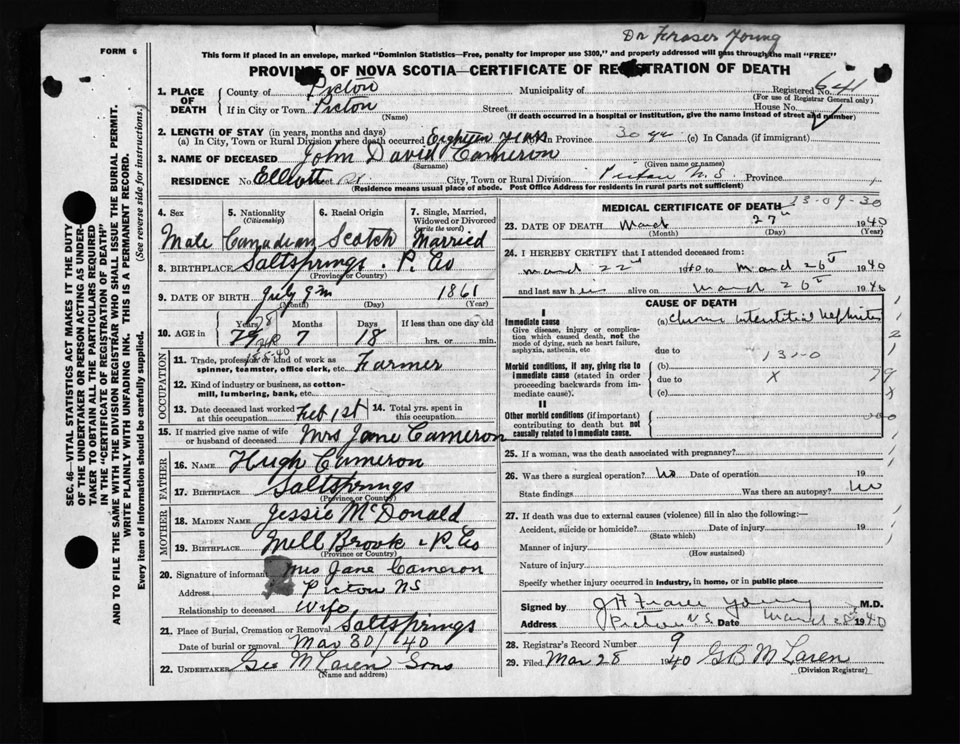 Dr Fraser Young
FORM 6
This form if placed in an envelope, marked "Dominion Statistics—Free, penalty for improper use $300," and properly addressed will pass through the mail "FREE"
PROVINCE OF NOVA SCOTIA—CERTIFICATE OF REGISTRATION OF DEATH
1. PLACE OF DEATH
County of Pictou
Municipality of
Registered No. 641
(For use of Registrar General only)
If in City or Town Pictou
(Name)
Street
House No.
(If death occurred in a hospital or institution, give the name instead of street and number)
2. LENGTH OF STAY (in years, months and days)
(a) In City, Town or Rural Division where death occurred Eighteen years (b) In Province (c) In Canada (if immigrant)
3. NAME OF DECEASED John David Cameron
(Surname) (Given name or names)
RESIDENCE No. Elliott Street St. City, Town or Rural Division Pictou N.S. Province
(Residence means usual place of abode. Post Office Address for residents in rural parts not sufficient)
4. Sex
Male
5. Nationality
(Citizenship)
Canadian
6. Racial Origin
Scotch
7. Single, Married, Widowed or Divorced
(write the word)
Married
8. BIRTHPLACE Saltsprings. P. Co
(Province or County)
9. DATE OF BIRTH July 9th 1861
(Month) (Day) (Year)
10. AGE in
Years 78
Months 7
Days 18
If less than one day old
hrs. or min.
OCCUPATION
11. Trade, profession or kind of work as spinner, teamster, office clerk, etc. Farmer
12. Kind of industry or business, as cotton-mill, lumbering, bank, etc.
13. Date deceased last worked at this occupation Feb 1st
14. Total yrs. spent in this occupation
15. If married give name of wife or husband of deceased Mrs Jane Cameron
FATHER
16. NAME Hugh Cameron
17. BIRTHPLACE Saltsprings
(Province or Country)
MOTHER
18. MAIDEN NAME Jessie McDonald
19. BIRTHPLACE Mill Brook . P. Co
(Province or Country)
20. Signature of informant Mrs Jane Cameron
Address Pictou NS
Relationship to deceased Wife
21. Place of Burial, Cremation or Removal Saltsprings
Date of burial or removal Mar 30/40
22. UNDERTAKER Geo McLaren Sons
(Name and address)
MEDICAL CERTIFICATE OF DEATH
23. DATE OF DEATH March 27th 1940
(Month) (Day) (Year)
24. I HEREBY CERTIFY that I attended deceased from:
March 22nd 1940 to March 26th 1940
and last saw him alive on March 26th 1940
CAUSE OF DEATH
I
Immediate cause
Give disease, injury or complication which caused death, not the mode of dying, such as heart failure, asphyxia, asthenia, etc
(a) Chronic interstitial Nephritis
due to
Morbid conditions, if any, giving rise to immediate cause (stated in order proceeding backwards from immediate cause).
(b)
due to
(c)
II
Other morbid conditions (if important) contributing to death but not causally related to immediate cause.
25. If a woman, was the death associated with pregnancy?
26. Was there a surgical operation? No Date of operation 19
State findings Was there an autopsy? No
27. If death was due to external causes (violence) fill in also the following:—
Accident, suicide or homicide? Date of injury 19
(State which)
Manner of injury
(How sustained)
Nature of injury
Specify whether injury occurred in industry, in home, or in public place
Signed by J H Fraser Young M.D.
Address Pictou N.S. Date March 28 1940
28. Registrar's Record Number 9
29. Filed Mar 28 1940 G B McLaren
(Division Registrar)
SEC. 46—VITAL STATISTICS ACT MAKES IT THE DUTY
OF THE UNDERTAKER OR PERSON ACTING AS UNDER-
TAKER TO OBTAIN ALL THE PARTICULARS REQUIRED
IN THE "CERTIFICATE OF REGISTRATION OF DEATH"
AND TO FILE THE SAME WITH THE DIVISION REGISTRAR WHO SHALL ISSUE THE BURIAL PERMIT.
WRITE PLAINLY WITH UNFADING INK. THIS IS A PERMANENT RECORD.
Every item of information should be carefully supplied. (See reverse side for instructions.)